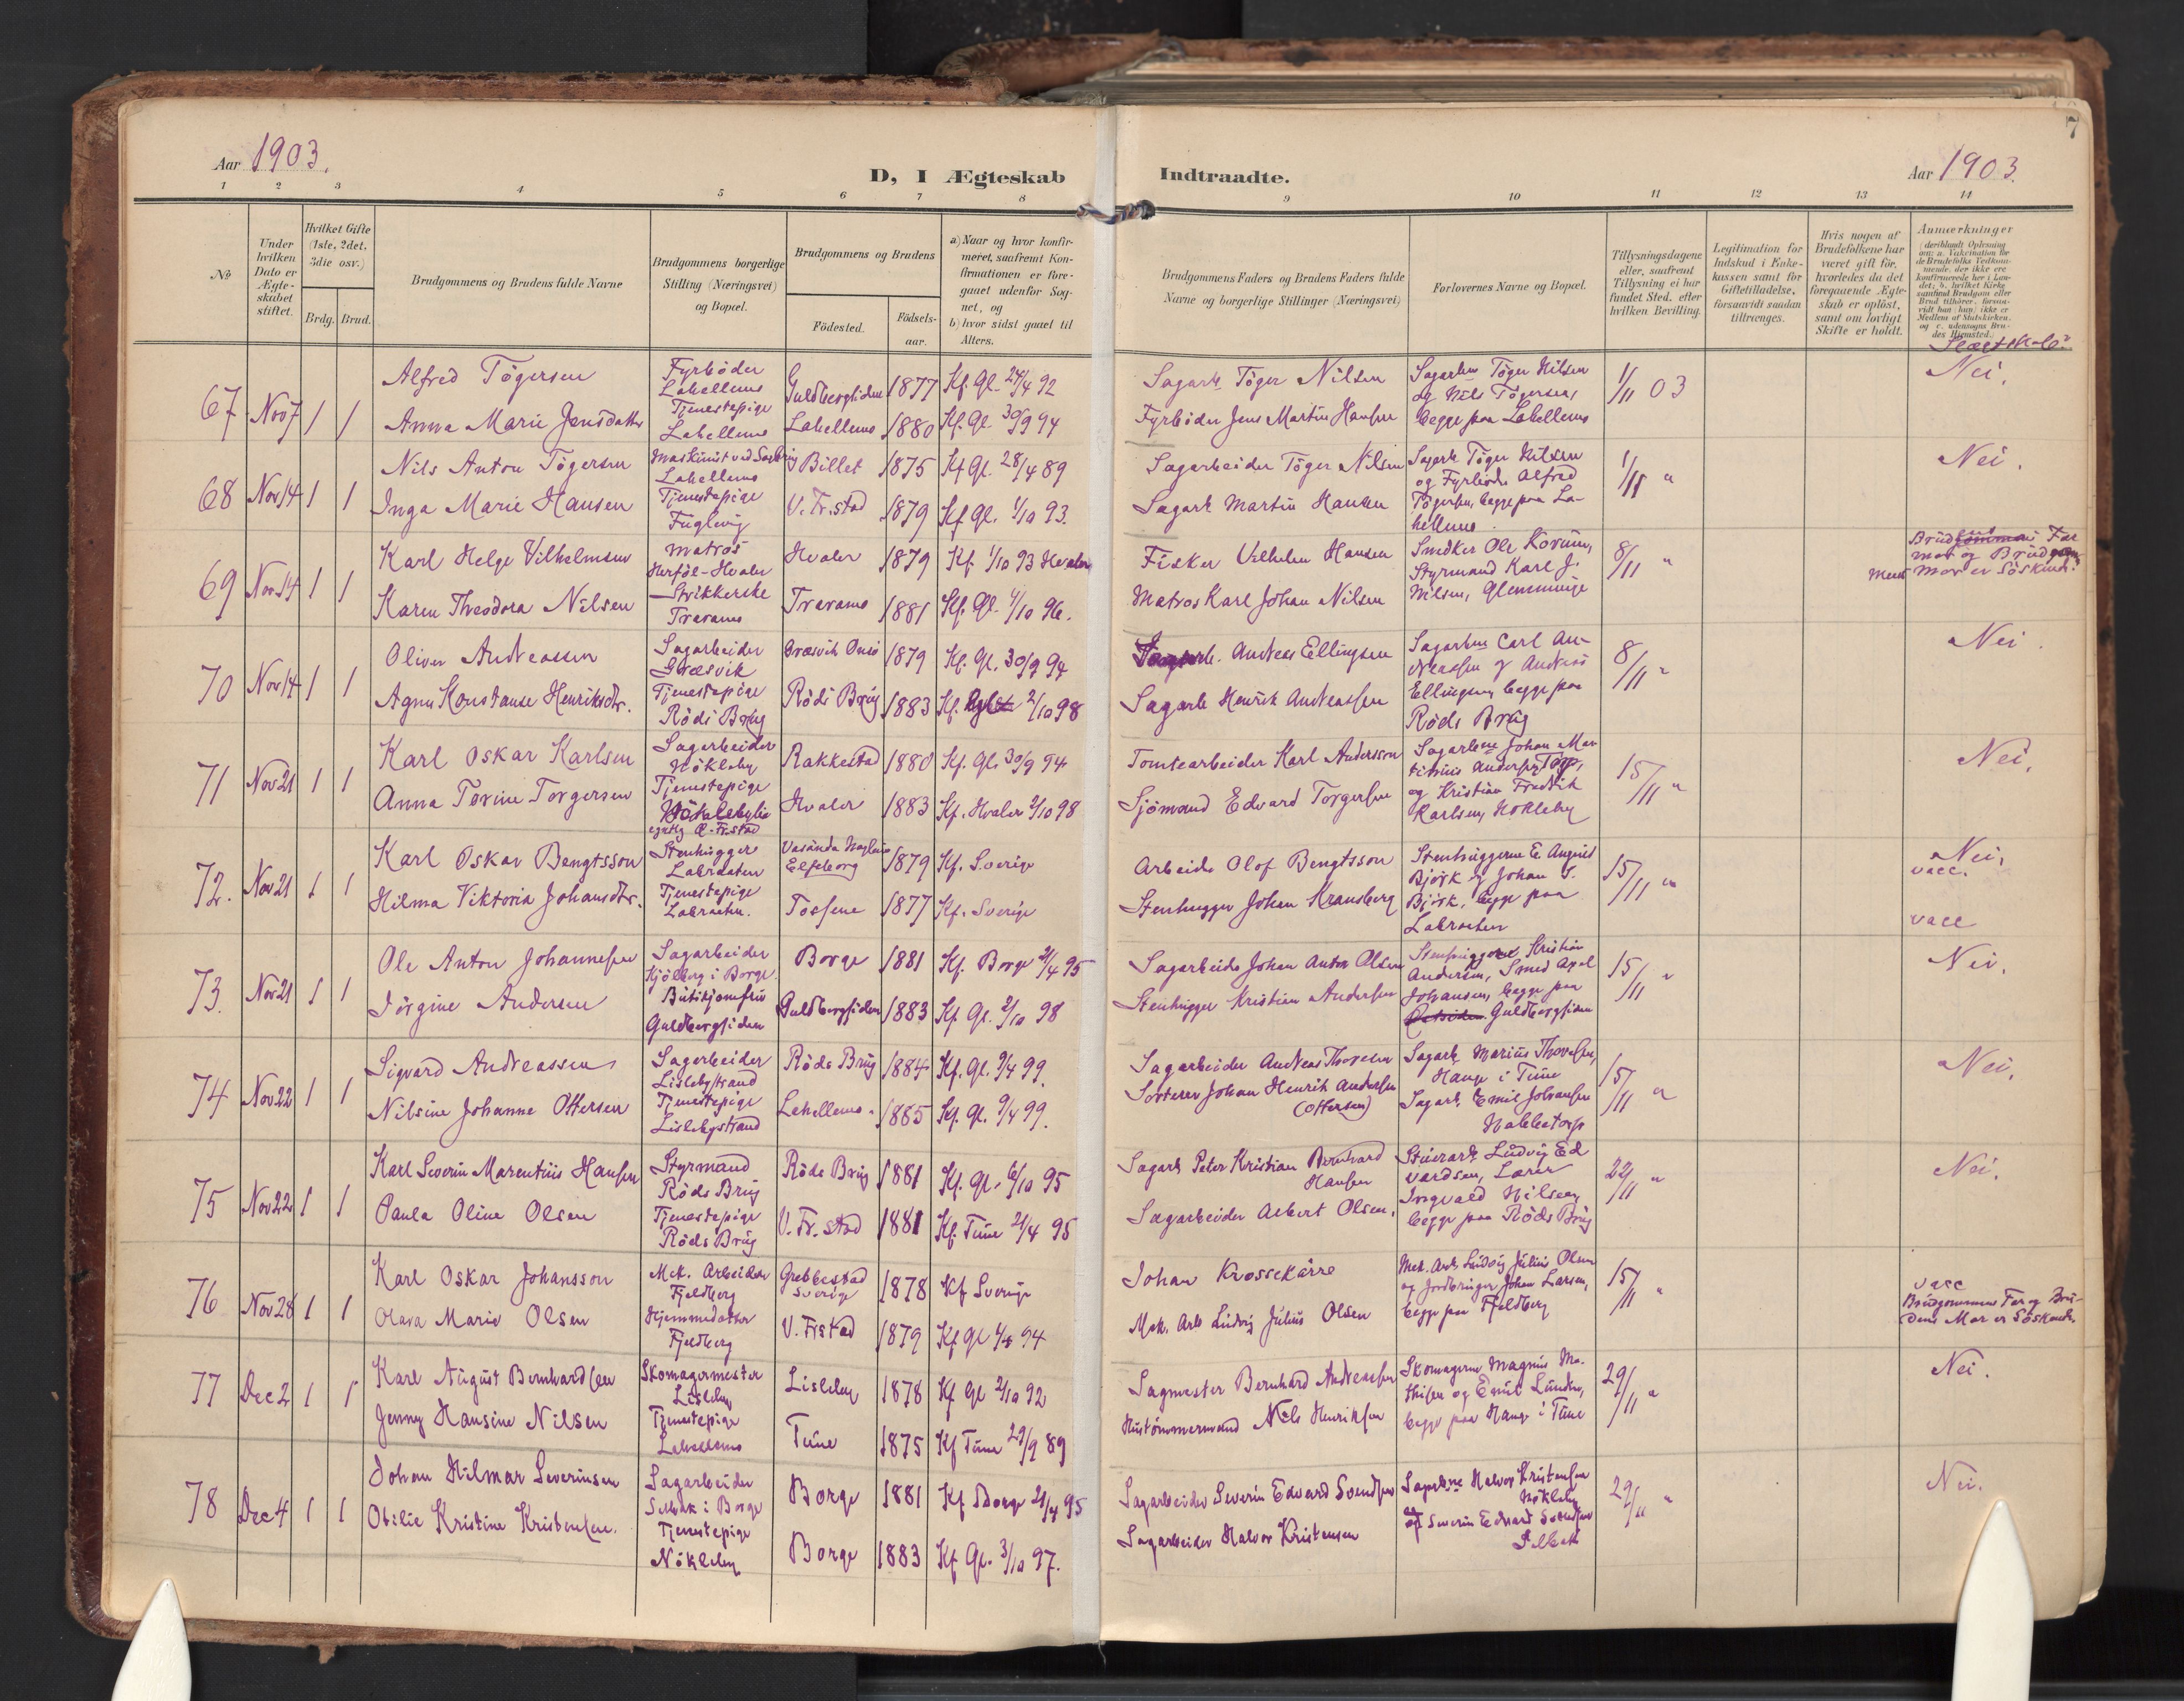 7
Aar 1903.
D, I Ægteskab Indtraadte.
Aar 1903.
1 2 3 4 5 6 7 8 9 10 11 12 13 14
No
Under hvilken Dato er Ægteskabet stiftet.
Hvilket Gifte (1ste, 2det, 3die osv.)
Brdg. Brud.
Brudgommens og Brudens fulde Navne
Brudgommens borgerlige Stilling (Næringsvei) og Bopæl.
Brudgommens og Brudens
Födested.
Födsels-aar.
a) Naar og hvor konfirmeret, saafremt Konfirmationen er foregaaet udenfor Sognet, og
b) hvor sidst gaaet til Alters.
Brudgommens Faders og Brudens Faders fulde Navne og borgerlige Stillinger (Næringsvei)
Forlovernes Navne og Bopæl.
Tillysningsdagene eller, saafremt Tillysning ei har fundet Sted, efter hvilken Bevilling.
Legitimation for Indskud i Enkekassen samt for Giftetilladelse, forsaavidt saadan tiltrænges.
Hvis nogen af Brudefolkene har været gift för, hvorledes da det foregaaende Ægteskab er oplöst, samt om lovligt Skifte er holdt.
Anmærkninger
Slægtskab?
67 Nov 7 1 1
Alfred Tögersen
Fyrböder
Lahellemo
Guldbergsiden 1877 Kf. Gl. 24/4 92
Sagarb. Töger Nilsen
Sagarbne Töger Nilsen
og Nils Tögersen,
begge paa Lahellemo
1/11 03
Nei.
Anna Marie Jensdatter
Tjenestepige
Lahellemo
Lahellemo 1880 Kf. Gl. 30/9 94
Fyrböder Jens Martin Hansen
68 Nov 14 1 1
Nils Anton Tögersen
Maskinist ved Sagbrug
Lahellemo
Billet 1875 Kf Gl. 28/4 89
Sagarbeider Töger Nilsen
Sagarb Töger Nilsen
og Fyrböder Alfred
Tögersen, begge paa La-
hellemo
1/11 "
Nei.
Inga Marie Hansen
Tjenestepige
Fuglevig
V. Fr.stad 1879 Kf Gl. 1/10 93.
Sagarb. Martin Hansen
69 Nov 14 1 1
Karl Helge Vilhelmsen
Matros
Herföl-Hvaler
Hvaler 1879 Kf. 1/10 93 Hvaler
Fisker Vilhelm Hansen
Snedker Ole Korum,
Styrmand Karl J.
Nilsen, Glemminge
8/11 "
Mor er Söskend
Karen Theodora Nilsen
Strikkerske
Traramo
Traramo 1881 Kf. Gl. 4/10 96.
Matros Karl Johan Nilsen
70 Nov 14 1 1
Oliver Andreassen
Sagarbeider
Græsvik
Græsvik Onsö 1879 Kf. Gl. 30/9 94
Andreas Ellingsen
Sagarbne Carl An-
dreassen og Andreas
Ellingsen, begge paa
Röds Brug
8/11 "
Nei.
Agnes Konstanse Henriksdtr.
Tjenestepige
Röds Brug
Röds Brug 1883 Kf. 2/10 98
Sagarb Henrik Andreassen
71 Nov 21 1 1
Karl Oskar Karlsen
Sagarbeider
Nökleby
Rakkestad 1880 Kf. Gl. 30/9 94
Tomtearbeider Karl Andersson
Sagarbne Johan Mar
tinius Andersen, Torp,
og Kristian Fredrik
Karlsen, Nökleby
15/11 "
Nei.
Anna Torine Torgersen
Tjenestepige
Hvaler 1883 Kf. Hvaler 2/10 98
Sjömand Edvard Torgersen
72. Nov 21 1 1
Karl Oskar Bengtsson
Stenhugger
Labraaten
Elfsborg 1879 Kf. Sverige
Arbeider Olof Bengtsson
Stenhuggerne E. August
Björk og Johan S.
Björk, begge paa
Labraaten
15/11 "
Nei.
vacc.
Hilma Viktoria Johansdtr.
Tjenestepige
Labraaten.
Tossene 1877 Kf. Sverige
Stenhugger Johan Kransberg
vacc
73. Nov 21 1 1
Ole Anton Johannessen
Sagarbeider
Kjölberg i Borge
Borge 1881 Kf. Borge 21/4 95
Sagarbeider Johan Anton Olsen
Stenhuggerne Kristian
Andersen, Smed Axel
Johansen, begge paa
Guldbergsiden
15/11 "
Nei.
Jörgine Andersen
Butikjomfru
Guldbergsiden
Guldbergsiden 1883 Kf. Gl. 2/10 98
Stenhugger Kristian Andersen
74 Nov 22 1 1
Sigvard Andreassen
Sagarbeider
Lislebystrand
Röds Brug 1884 Kf. Gl. 9/4 99.
Sagarbeider Andreas Thoresen
Sagarb Marius Thoresen,
Hauge i Tune
Sagarb. Emil Johansen
Nabbetorp
15/11 "
Nei.
Nilsine Johanne Ottersen
Tjenestepige
Lislebystrand
Lahellemo. 1885 Kf. Gl. 9/4 99.
Sorterer Johan Henrik Andersen
(Ottersen)
75 Nov 22 1 1
Karl Severin Marentius Hansen
Styrmand
Röds Brug
Röds Brug 1881 Kf. Gl. 6/10 95
Sagarb Peter Kristian Bernhard
Hansen
Stuerarb. Ludvig Ed
vardsen, Lærer
Ingvald Nilsen,
begge paa Röds Brug
22/11 "
Nei.
Paula Oline Olsen
Tjenestepige
Röds Brug
V. Fr. stad 1881 Kf. Tune 21/4 95
Sagarbeider Albert Olsen.
76 Nov 28 1 1
Karl Oskar Johansson
Mek. Arbeider
Fjeldberg
Grebbestad
Sverige 1878 Kf Sverige
Johan Krossekärre
Mek. Arb. Ludvig Julius Olsen
og Jordbruger Johan Larsen,
begge paa Fjeldberg
15/11 "
vacc
Brudgommens Far og Bru-
dens Mor er Söskende.
Olava Marie Olsen
Hjemmedatter
Fjeldberg
V. Frstad 1879 Kf Gl 94
Mek. Arb Ludvig Julius Olsen
77 Dec 2 1 1
Karl August Bernhardsen
Skomagermester
Lisleby
Lisleby 1878 Kf Gl 2/10 92
Sagmester Bernhard Andreassen
Skomagerne Magnus Ma-
thisen og Emil Lunde,
begge paa Hauge i Tune
29/11 "
Nei.
Jenny Hansine Nilsen
Tjenestepige
Lahellemo
Tune 1875 Kf Tune 29/9 89
Hustömmermand Nils Henriksen
78 Dec 4 1 1
Johan Hilmar Severinsen
Sagarbeider
Selbak i Borge
Borge 1881 Kf Borge 21/4 95
Sagarbeider Severin Edvard Svendsen
Sagarbne Halvor Kristensen
Nökleby
og Severin Edvard Svendsen
Selbak
29/11 "
Nei.
Otilie Kristine Kristensen.
Tjenestepige
Nökleby
Borge 1883 Kf Gl. 3/10 97.
Sagarbeider Halvor Kristensen